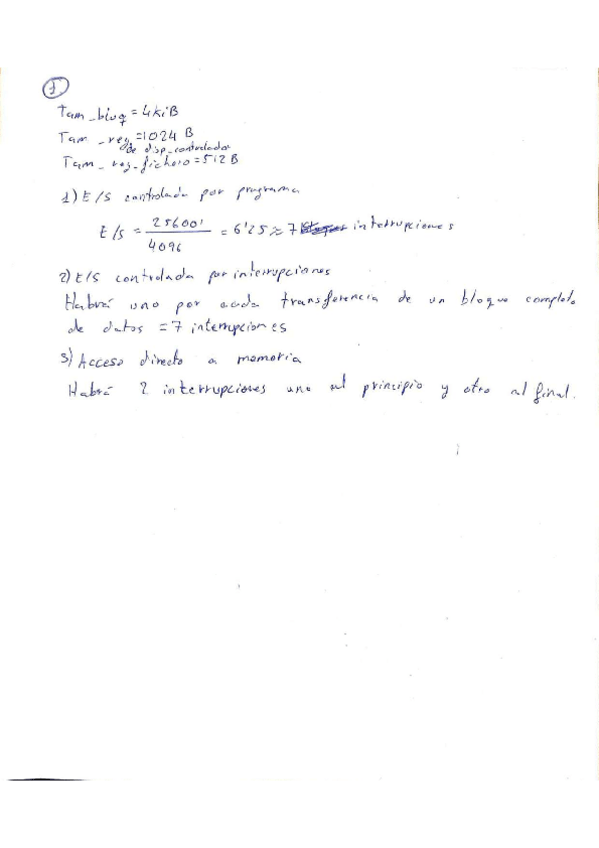 1
Tam_bloq = 4kiB
Tam_reg = 1024 B
de disp_controlador
Tam_reg_fichero = 512 B
1) E/S controlada por programa
E/S = 25600 / 4096 = 6'25 ≈ 7 interrupciones
2) E/S controlada por interrupciones
Habrá uno por cada transferencia de un bloque completo
de datos = 7 interrupciones
3) Acceso directo a memoria
Habrá 2 interrupciones uno al principio y otro al final.